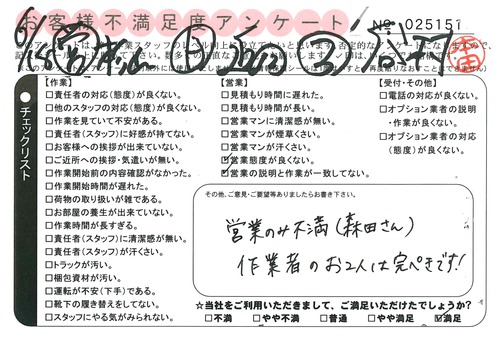 お客様不満足度アンケート
No 025151
【作業】
□責任者の対応(態度)が良くない。
□他のスタッフの対応(態度)が良くない。
□作業を見ていて不安がある。
□責任者(スタッフ)に好感が持てない。
□お客様への挨拶が出来ていない。
□ご近所への挨拶・気遣いが無い。
□作業開始前の内容確認がなかった。
□作業開始時間が遅れた。
□荷物の取り扱いが雑である。
□お部屋の養生が出来ていない。
□作業時間が長すぎる。
□責任者(スタッフ)に清潔感が無い。
□責任者(スタッフ)が汗くさい。
□トラックが汚い。
□梱包資材が汚い。
□運転が不安(下手)である。
□靴下の履き替えをしてない。
□スタッフにやる気がみられない。
【営業】
□見積もり時間に遅れた。
□見積もり時間が長い。
□営業マンに清潔感が無い。
□営業マンが煙草くさい。
□営業マンが汗くさい。
☑営業態度が良くない。
☑営業の説明と作業が一致してない。
【受付・その他】
□電話の対応が良くない。
□オプション業者の説明
・作業が良くない。
□オプション業者の対応
(態度)が良くない。
チェックリスト
その他、ご意見・ご要望等ありましたらお書き下さい。
営業のみ不満(森田さん)
作業者のお2人は完ぺきです!
☆当社をご利用いただきまして、ご満足いただけたでしょうか?
□不満 □やや不満 □普通 □やや満足 ☑満足